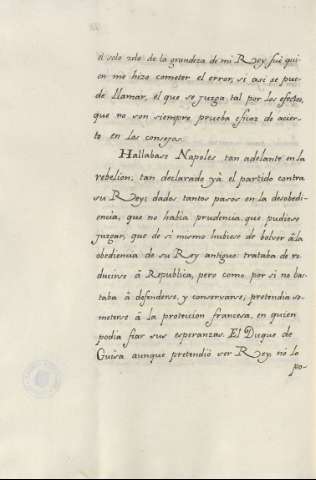 el solo zelo de la grandeza de mi Rey, fué qui
en me hizo cometer el error, si así se pue-
de llamar, el que se juzga tal por los efectos,
que no son siempre prueba eficaz de acier-
to en los consejos.
Hallabase Napoles tan adelante en la
rebelion, tan declarado yà el partido contra
su Rey; dados tantos pasos en la desobedi-
encia, que no habia prudencia, que pudiese
juzgar, que de si mismo hubiese de bolver à la
obediencia de su Rey antiguo: trataba de re-
ducirse à Republica, pero como por si no bas-
taba à defenderse, y conservarse, pretendia so-
meterse à la proteccion francesa, en quien
podia fiar sus esperanzas. El Duque de
Guisa aunque pretendiò ser Rey, no lo
po-